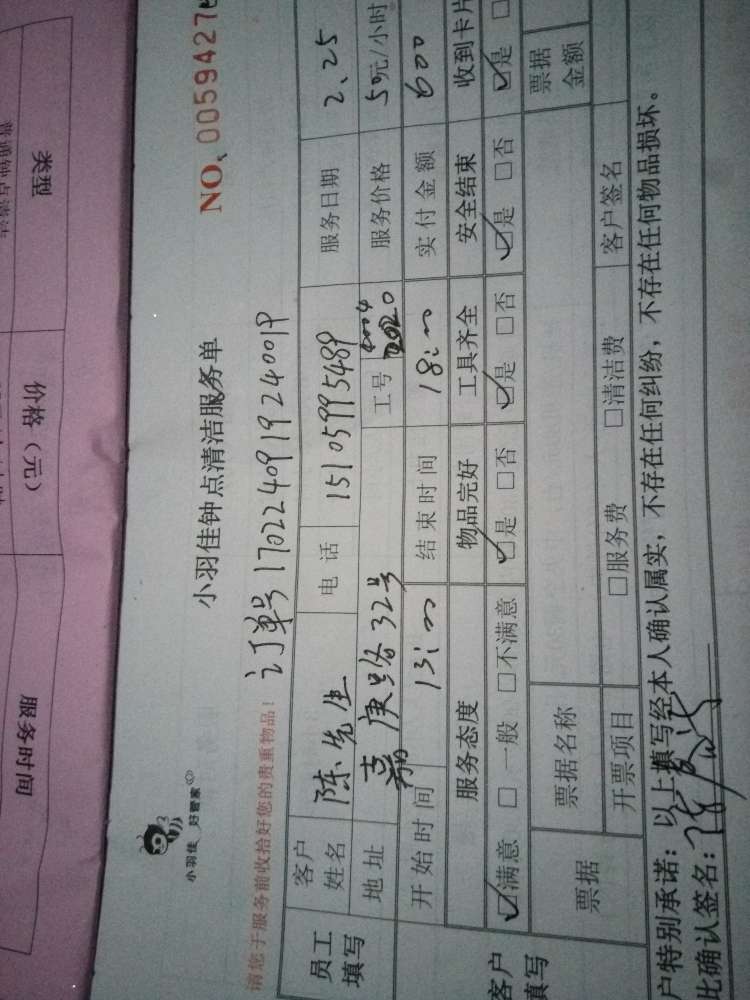 类型
价格（元）
服务时间
小羽佳 好管家
小羽佳钟点清洁服务单
NO、0059427
请您于服务前收拾好您的贵重物品！
订单号170224091924001P
员工填写
客户姓名 陈先生 电话 15105995489 服务日期 2、25
地址 嘉庚路32号 工号 服务价格 50元/小时
开始时间 13:00 结束时间 18:00 实付金额 600
客户填写
服务态度 物品完好 工具齐全 安全结束 收到卡片
☑满意 □一般 □不满意 ☑是 □否 ☑是 □否 ☑是 □否 ☑是 □
票据 票据名称 票据金额
开票项目 □服务费 □清洁费 客户签名
户特别承诺：以上填写经本人确认属实，不存在任何纠纷，不存在任何物品损坏。
此确认签名：